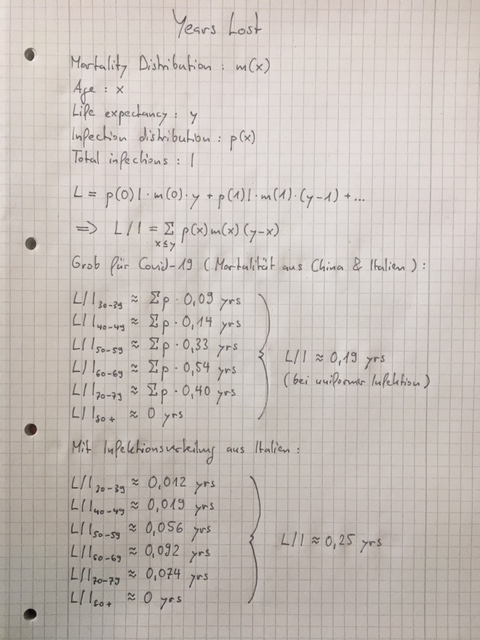 Years Lost
Mortality Distribution : m(x)
Age : x
Life expectancy : y
Infection distribution : p(x)
Total infections : I
L = p(0)I · m(0) · y + p(1)I · m(1) · (y-1) + ...
⇒ L/I = Σ p(x)m(x)(y-x)
x≤y
Grob für Covid-19 (Mortalität aus China & Italien) :
L/I₃₀₋₃₉ ≈ Σp · 0,09 yrs
L/I₄₀₋₄₉ ≈ Σp · 0,14 yrs
L/I₅₀₋₅₉ ≈ Σp · 0,33 yrs
L/I₆₀₋₆₉ ≈ Σp · 0,54 yrs
L/I₇₀₋₇₉ ≈ Σp · 0,40 yrs
L/I₈₀₊ ≈ 0 yrs
L/I ≈ 0,19 yrs
(bei uniformer Infektion)
Mit Infektionsverteilung aus Italien :
L/I₃₀₋₃₉ ≈ 0,012 yrs
L/I₄₀₋₄₉ ≈ 0,019 yrs
L/I₅₀₋₅₉ ≈ 0,056 yrs
L/I₆₀₋₆₉ ≈ 0,092 yrs
L/I₇₀₋₇₉ ≈ 0,074 yrs
L/I₈₀₊ ≈ 0 yrs
L/I ≈ 0,25 yrs